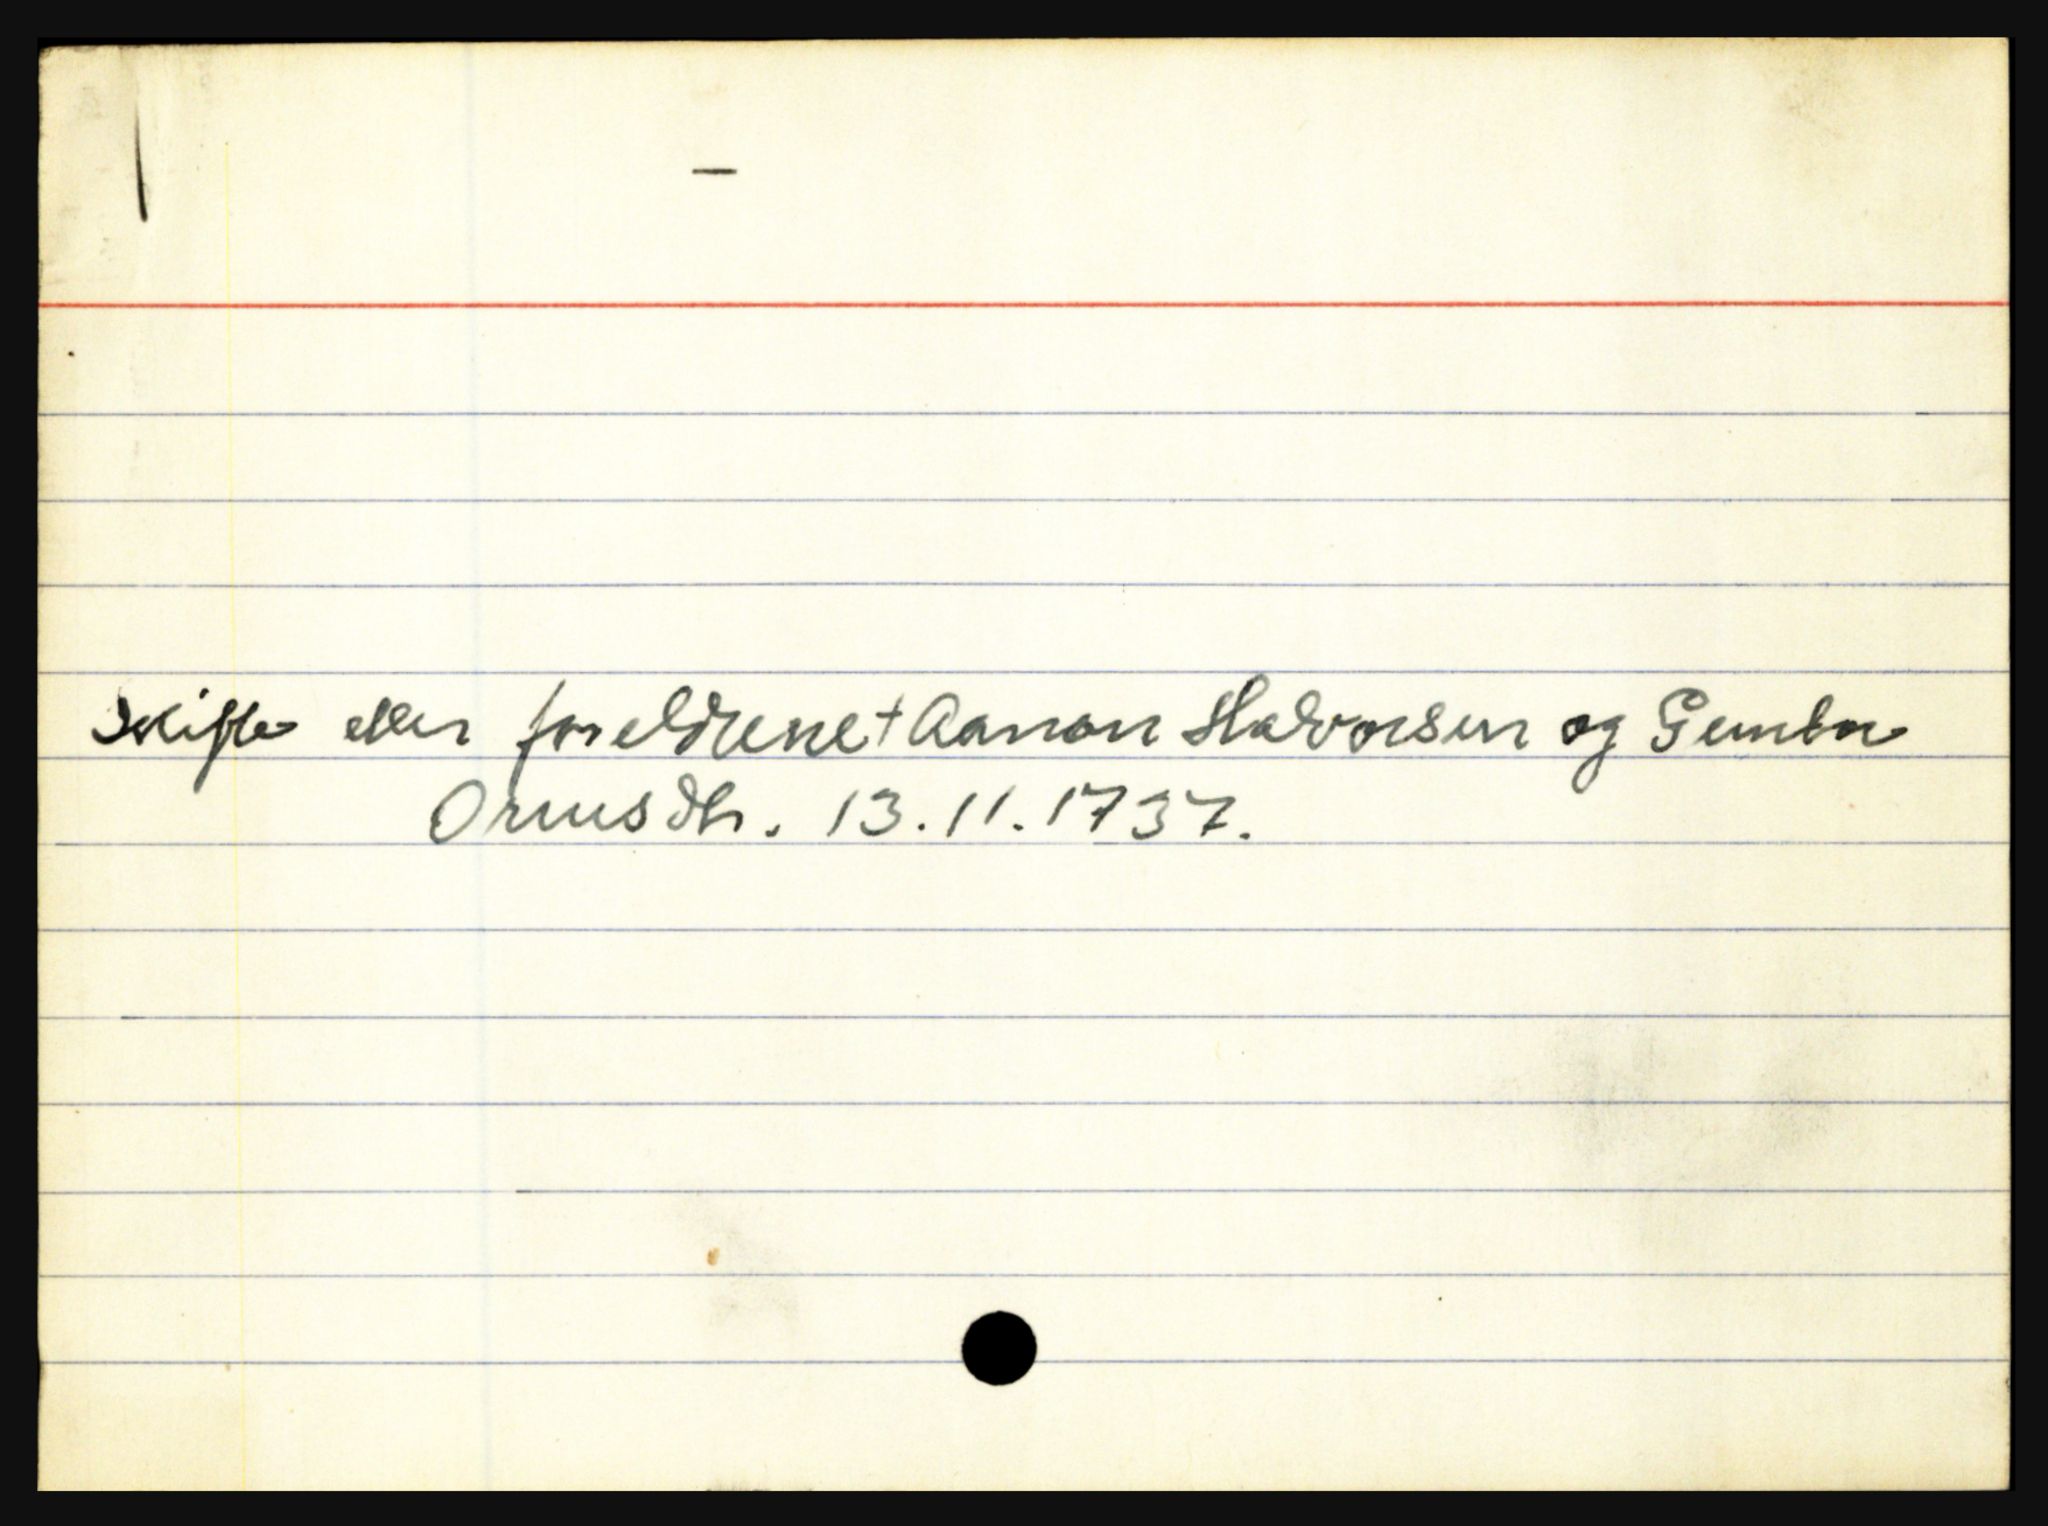 –
Skifte etter foreldrene † Aanon Halvorsen og Gunbor
Ormsdtr. 13.11.1737.